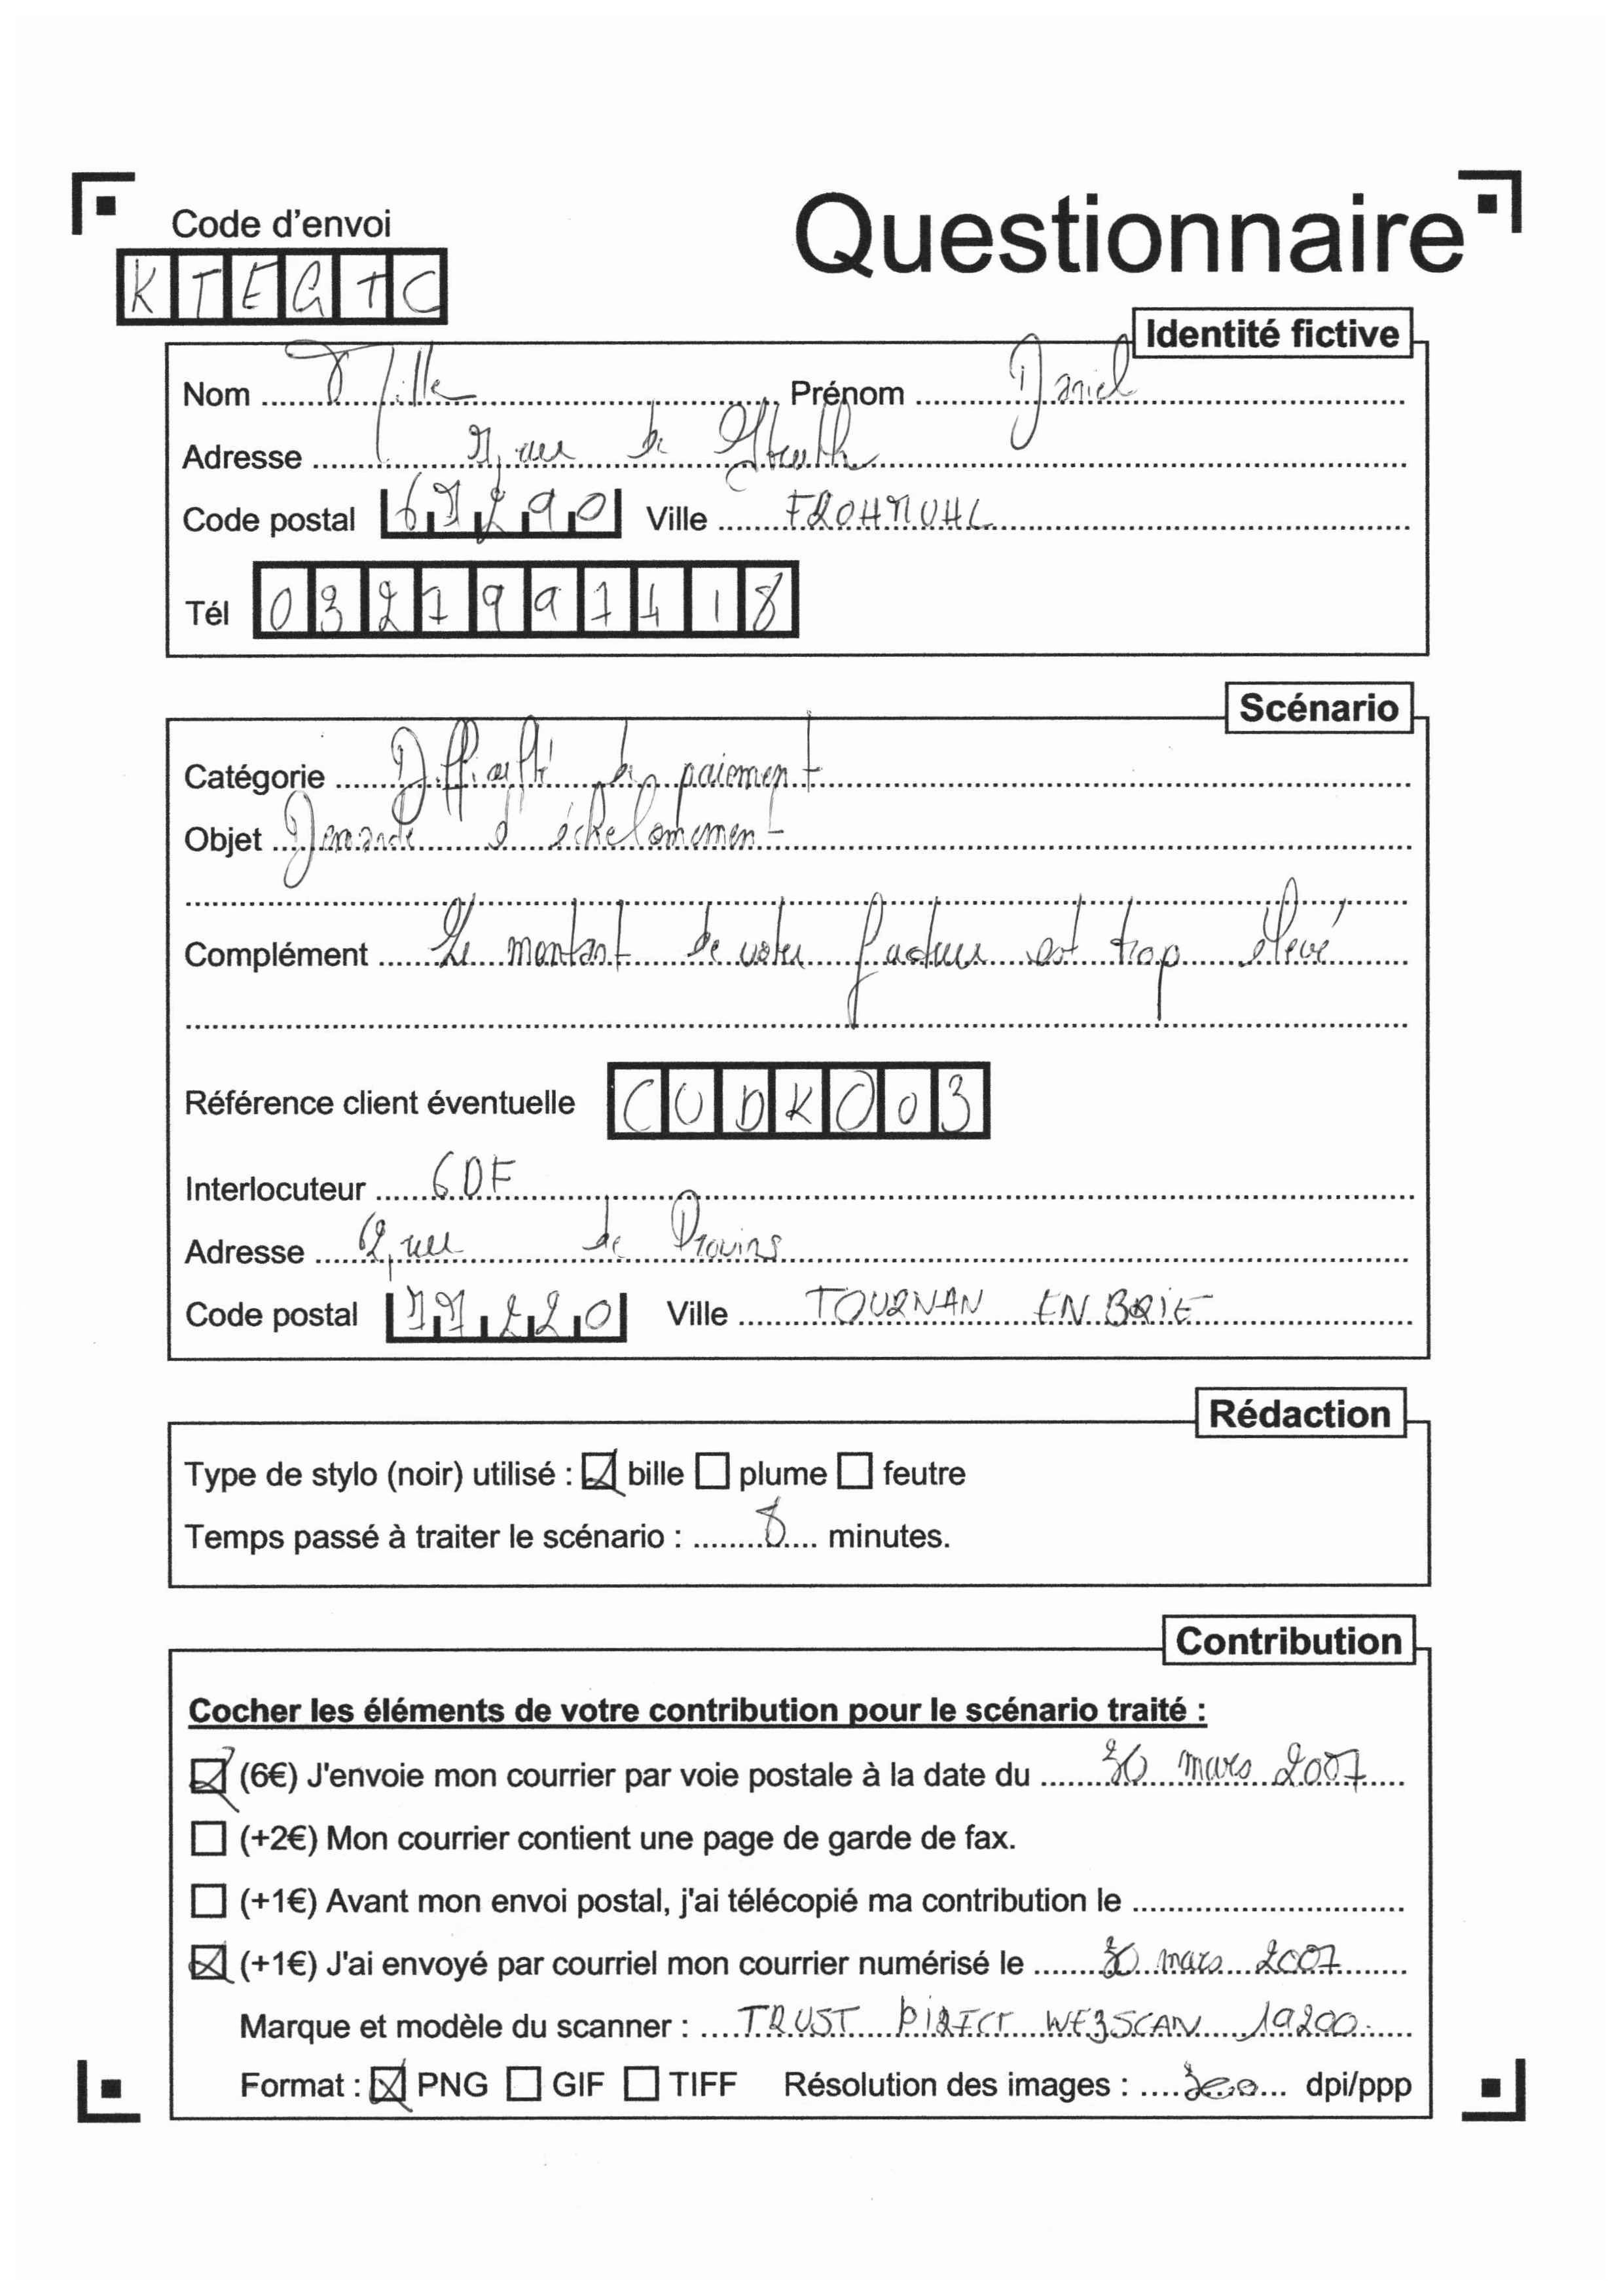 Questionnaire
Code d'envoi
KTEGTC
Identité fictive
Nom Mille Prénom Daniel
Adresse 7, rue de
Code postal 67290 Ville FROHMUHL
Tél 0327997418
Scénario
Catégorie Difficulté de paiement
Objet Demande d'échelonnement
Complément Le montant de votre facture est trop élevé
Référence client éventuelle CUDKO03
Interlocuteur GDF
Adresse 62, rue de Provins
Code postal 77220 Ville TOURNAN EN BRIE
Rédaction
Type de stylo (noir) utilisé : bille plume feutre
Temps passé à traiter le scénario : 8 minutes.
Contribution
Cocher les éléments de votre contribution pour le scénario traité :
(6€) J'envoie mon courrier par voie postale à la date du 30 mars 2007
(+2€) Mon courrier contient une page de garde de fax.
(+1€) Avant mon envoi postal, j'ai télécopié ma contribution le
(+1€) J'ai envoyé par courriel mon courrier numérisé le 30 mars 2007
Marque et modèle du scanner : TRUST DIRECT WEBSCAN 19200
Format : PNG GIF TIFF Résolution des images : 300 dpi/ppp